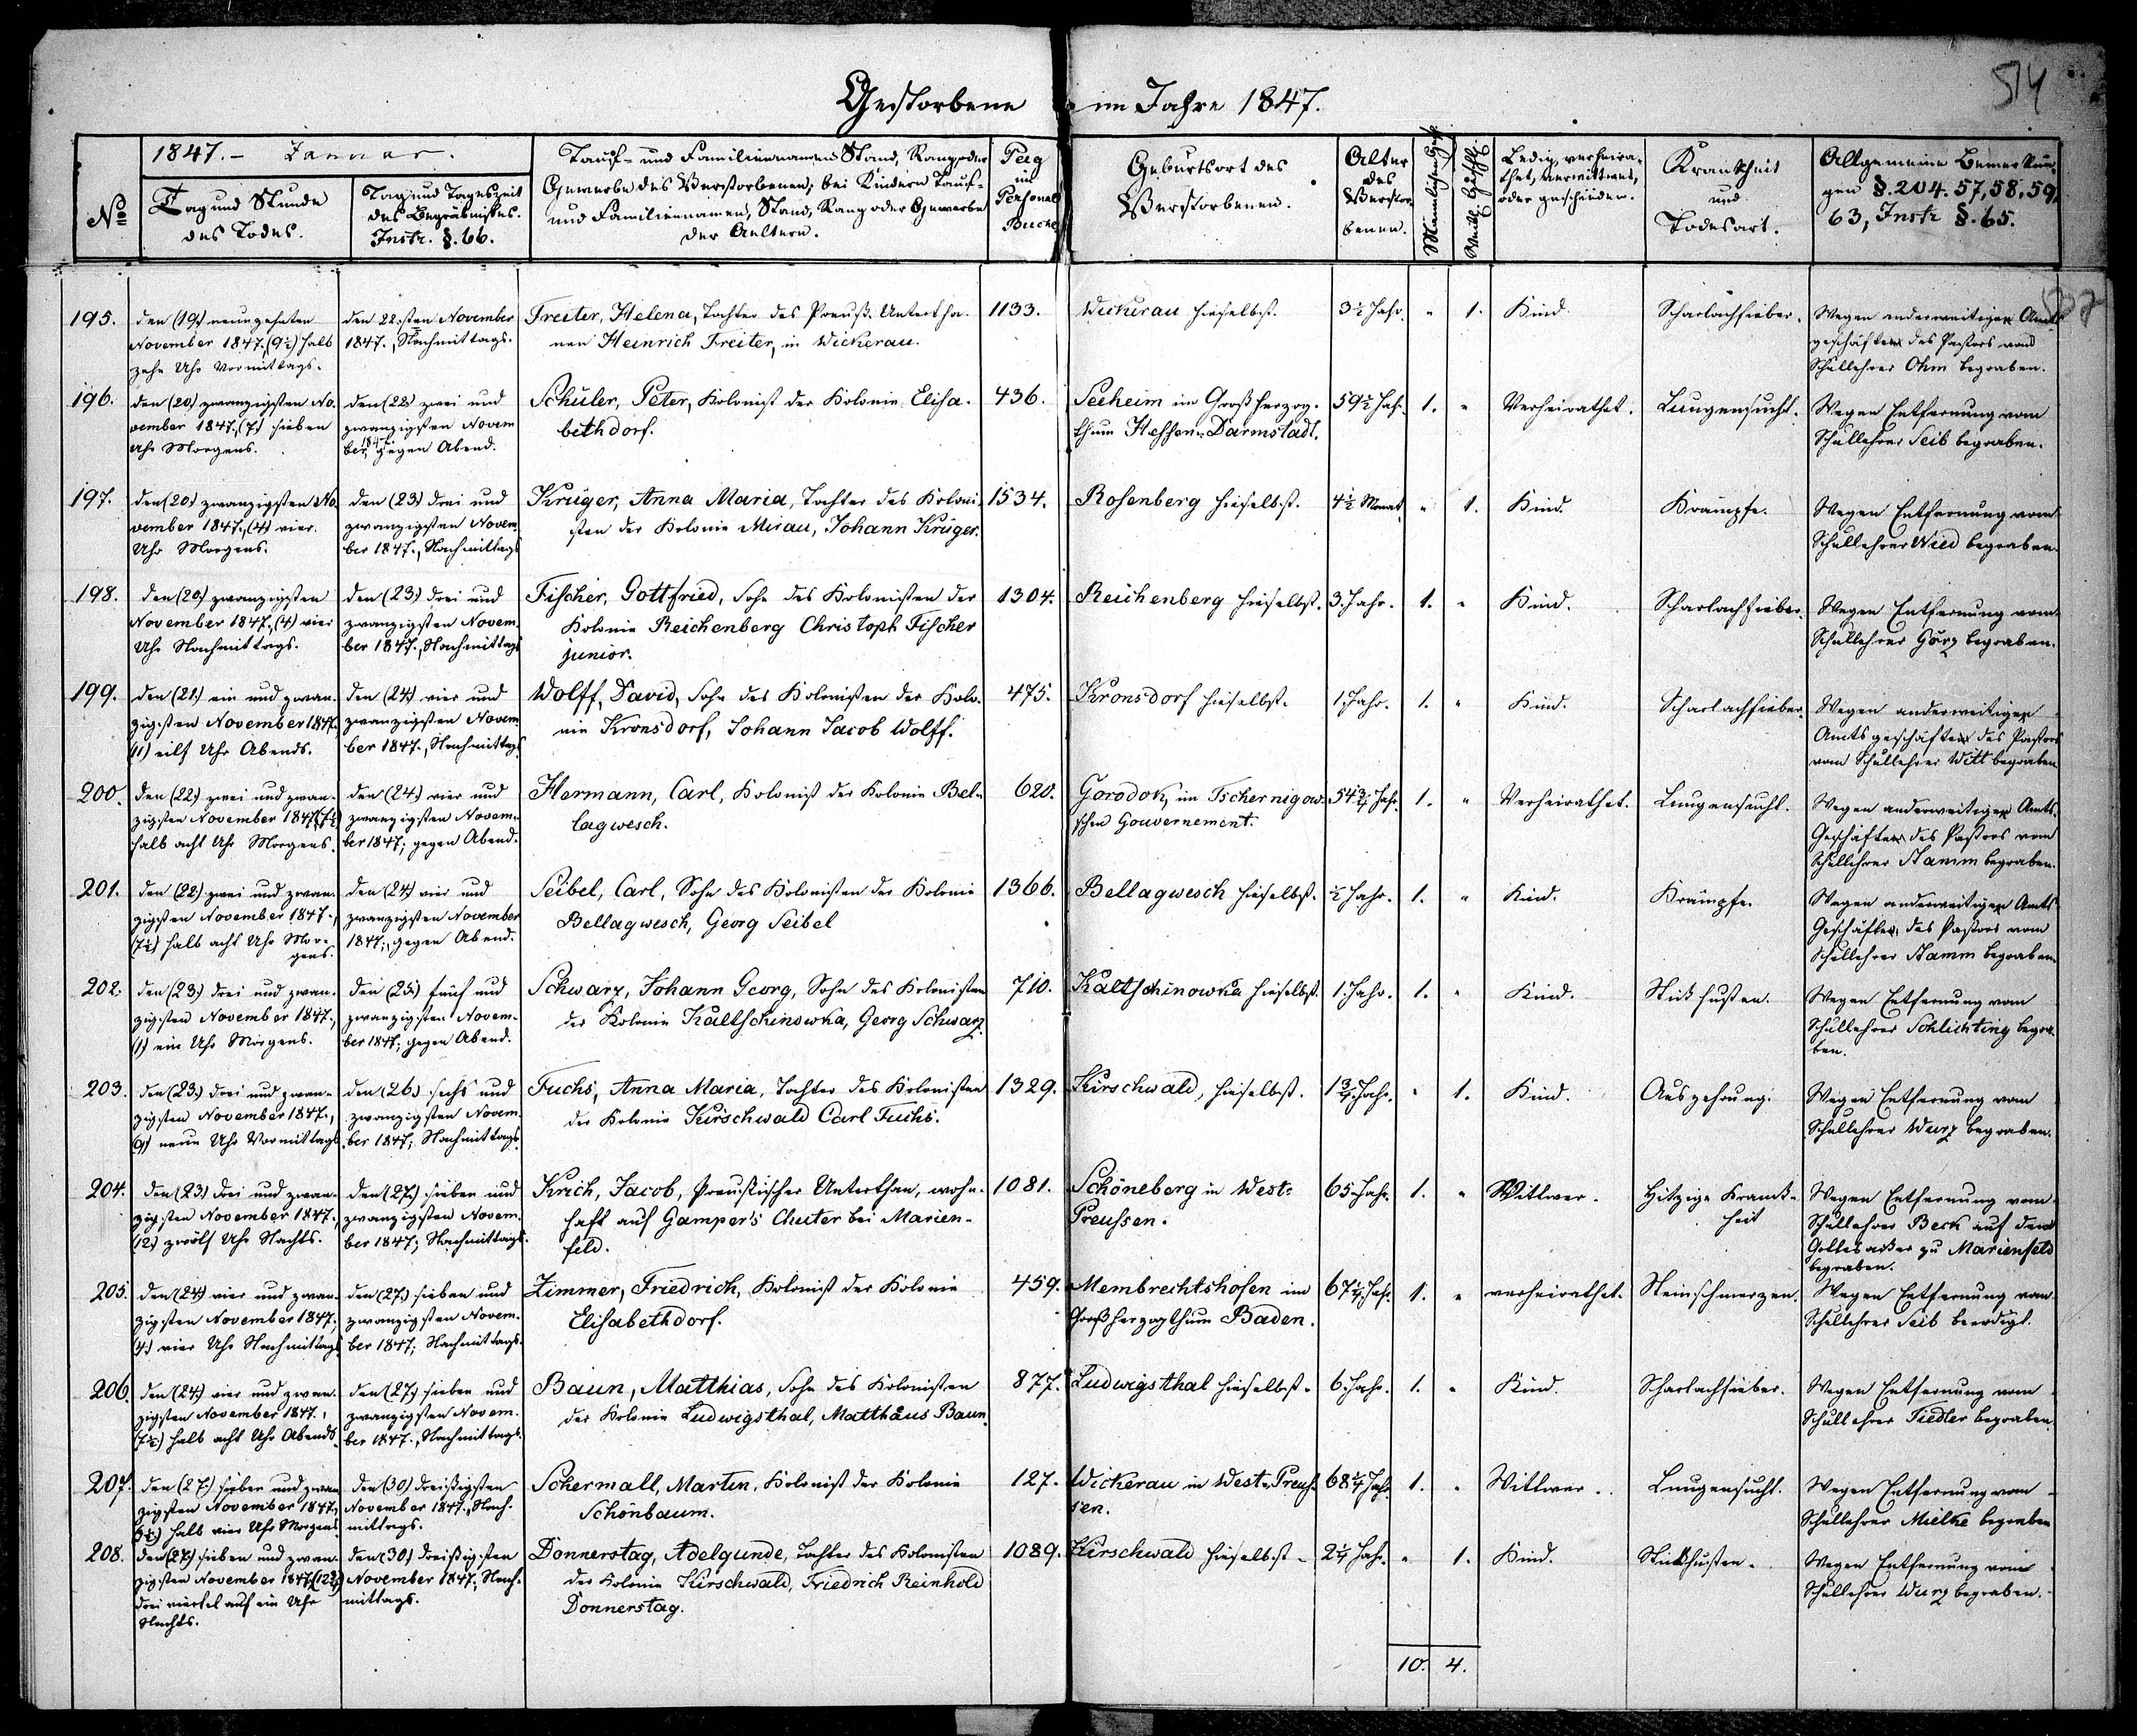 514
Gestorbene im Jahre 1847.
№
1847. - Januar.
Tag und Stunde
des Todes.
Tag und Tageszeit
des Begräbnisses.
Instr. §. 66.
Tauf- und Familiennamen Stand, Rang oder
Gewerbe des Verstorbenen, bei Kindern Tauf-
und Familiennamen, Stand, Rang oder Gewerbe
der Aeltern.
Pag
im
Personal
Buche
Geburtsort des
Verstorbenen.
Alter
des
Verstor-
benen.
Männlichen Gesch.
Weibl. Geschl.
Ledig, verheira-
thet, verwittwet,
oder geschieden.
Krankheit
und
Todesart.
Allgemeine Bemerkun-
gen §. 204. 57, 58, 59,
63, Instr §. 65.
195.
den (19.) neunzehnten
November 1847, (9½) halb
zehn Uhr Vormittags.
den 22.sten November
1847., Nachmittags.
Freiter, Helena, Tochter des Preuß. Untertha-
nen Heinrich Freiter, in Wickerau.
1133.
Wickerau hieselbst.
3½ Jahr.
"
1.
Kind.
Scharlachfieber.
Wegen anderweitiger Amts
geschäfte des Pastors vom
Schullehrer Ohm begraben.
196.
den (20.) zwanzigsten No-
vember 1847., (7.) sieben
Uhr Morgens.
den (22.) zwei und
zwanzigsten Novem
ber 1847, gegen Abend.
Schüler, Peter, Kolonist der Kolonie Elisa-
bethdorf.
436.
Seeheim im Großherzog-
thum Hessen-Darmstadt.
59½ Jahr.
1.
"
Verheirathet.
Lungensucht.
Wegen Entfernung vom
Schullehrer Seib begraben.
197.
den (20.) zwanzigsten No-
vember 1847., (4.) vier
Uhr Morgens.
den (23.) drei und
zwanzigsten Novem-
ber 1847., Nachmittags
Krüger, Anna Maria, Tochter des Koloni-
sten der Kolonie Mirau, Johann Krüger.
1534.
Rosenberg hieselbst.
4½ Monat
"
1.
Kind.
Krämpfe.
Wegen Entfernung vom
Schullehrer Wied begraben.
198.
den (20.) zwanzigsten
November 1847., (4) vier
Uhr Nachmittags.
den (23.) drei und
zwanzigsten Novem-
ber 1847., Nachmittags
Fischer, Gottfried, Sohn des Kolonisten der
Kolonie Reichenberg Christoph Fischer
junior.
1304.
Reichenberg hieselbst.
3. Jahr.
1.
"
Kind.
Scharlachfieber.
Wegen Entfernung vom
Schullehrer Görz begraben.
199.
den (21.) ein und zwan-
zigsten November 1847.
(11) eilf Uhr Abends.
den (24.) vier und
zwanzigsten Novem
ber 1847., Nachmittags
Wolff, David, Sohn des Kolonisten der Kolo-
nie Kronsdorf, Johann Jacob Wolff.
475.
Kronsdorf hieselbst.
1. Jahr.
1.
"
Kind.
Scharlachfieber.
Wegen anderweitiger
Amtsgeschäfte des Pastors
vom Schullehrer Witt begraben
200.
den (22.) zwei und zwan-
zigsten November 1847, (7½)
halb acht Uhr Morgens.
den (24.) vier und
zwanzigsten Novem-
ber 1847; gegen Abend.
Hermann, Carl, Kolonist der Kolonie Bel-
lagwesch.
620.
Gorodok, im Tschernigow-
schen Gouvernement.
54¾ Jahr.
1.
"
Verheirathet.
Lungensucht.
Wegen anderweitiger Amts-
Geschäfte des Pastors vom
Schullehrer Stamm begraben.
201.
den (22.) zwei und zwan-
zigsten November 1847.,
(7½) halb acht Uhr Mor-
gens.
den (24) vier und
zwanzigsten November
1847; gegen Abend.
Seibel, Carl, Sohn des Kolonisten der Kolonie
Bellagwesch, Georg Seibel
1366.
Bellagwesch hieselbst.
½ Jahr.
1.
"
Kind.
Krämpfe.
Wegen anderweitiger Amts
Geschäfte des Pastors vom
Schullehrer Stamm begraben.
202.
den (23.) drei und zwan-
zigsten November 1847.,
(1) ein Uhr Morgens.
den (25.) fünf und
zwanzigsten Novem-
ber 1847; gegen Abend.
Schwarz, Johann Georg, Sohn des Kolonisten
der Kolonie Kaltschinowka, Georg Schwarz.
710.
Kaltschinowka hieselbst.
1. Jahr.
1.
"
Kind.
Stickhusten.
Wegen Entfernung vom
Schullehrer Schlichting begra-
ben.
203.
den (23.) drei und zwan-
zigsten November 1847.,
(9) neun Uhr Vormittags
den (26.) sechs und
zwanzigsten Novem-
ber 1847; Nachmittags
Fuchs, Anna Maria, Tochter des Kolonisten
der Kolonie Kirschwald Carl Fuchs.
1329.
Kirschwald, hieselbst.
1¾ Jahr.
"
1.
Kind.
Auszehrung.
Wegen Entfernung vom
Schullehrer Wurz begraben.
204.
den (23.) drei und zwan-
zigsten November 1847.
(12.) zwölf Uhr Nachts.
den (27.) sieben und
zwanzigsten Novem-
ber 1847; Nachmittags.
Krich, Jacob, Preußischer Unterthan, wohn-
haft auf Gamper's Chuter bei Marien-
feld.
1081.
Schöneberg in West-
Preussen.
65. Jahr.
1.
"
Wittwer.
Hitzige Krank-
heit
Wegen Entfernung vom
Schullehrer Beck auf dem
Gottesacker zu Marienfeld
begraben.
205.
den (24.) vier und zwan-
zigsten November 1847.,
(4.) vier Uhr Nachmittags
den (27.) sieben und
zwanzigsten Novem-
ber 1847; Nachmittags.
Zimmer, Friedrich, Kolonist der Kolonie
Elisabethdorf.
459.
Membrechtshofen im
Großherzogthum Baden.
67¼ Jahr.
1.
"
verheirathet.
Steinschmerzen.
Wegen Entfernung vom
Schullehrer Seib beerdigt.
206.
den (24.) vier und zwan-
zigsten November 1847.,
(7½) halb acht Uhr Abends
den (27.) sieben und
zwanzigsten Novem-
ber 1847., Nachmittags.
Baun, Matthias, Sohn des Kolonisten
der Kolonie Ludwigsthal, Matthäus Baun.
877.
Ludwigsthal hieselbst.
6. Jahr.
1.
"
Kind.
Scharlachfieber.
Wegen Entfernung vom
Schullehrer Fiedler begraben.
207.
den (27.) sieben und zwan
zigsten November 1847.,
(3½) halb vier Uhr Morgens
den (30) dreißigsten
November 1847., Nach-
mittags.
Schermall, Martin, Kolonist der Kolonie
Schönbaum.
127.
Wickerau in West-Preus-
sen.
68¼ Jahr
1.
"
Wittwer.
Lungensucht.
Wegen Entfernung vom
Schullehrer Mielke begraben
208.
den (27.) sieben und zwan-
zigsten November 1847, (12¾)
drei viertel auf ein Uhr
Nachts.
den (30) dreißigsten
November 1847; Nach-
mittags.
Donnerstag, Adelgunde, Tochter des Kolonisten
der Kolonie Kirschwald, Friedrich Reinhold
Donnerstag.
1089.
Kirschwald hieselbst
2¼ Jahr.
"
1.
Kind.
Stickhusten.
Wegen Entfernung vom
Schullehrer Wurz begraben.
10.
4.